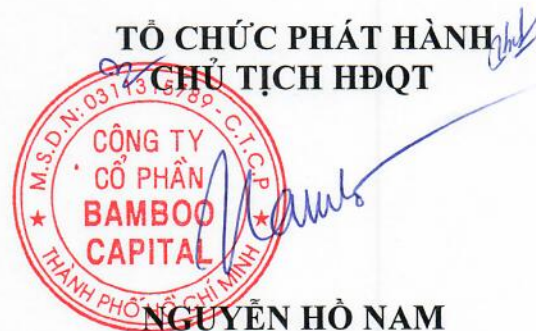 TỔ CHỨC PHÁT HÀNH
CHỦ TỊCH HĐQT
M.S.D.N: 0311315789 - C.T.C.P
CÔNG TY
CỔ PHẦN
BAMBOO
CAPITAL
THÀNH PHỐ HỒ CHÍ MINH
NGUYỄN HỒ NAM